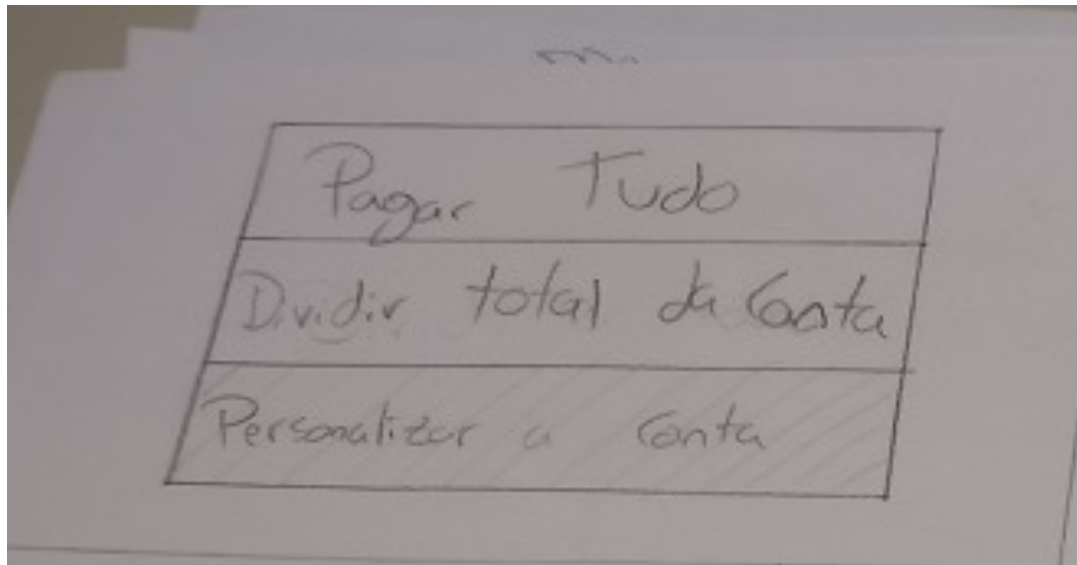 Pagar Tudo
Dividir total da Conta
Personalizar a Conta